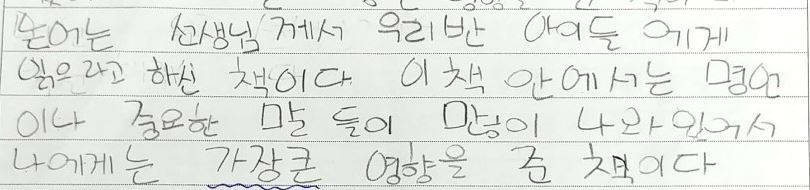 논어는 선생님 께서 우리반 아이들 에게
읽으라고 하신 책이다 이 책 안에서는 명언
이나 중요한 말 들이 많이 나와 있어서
나에게는 가장큰 영향을 준 책이다